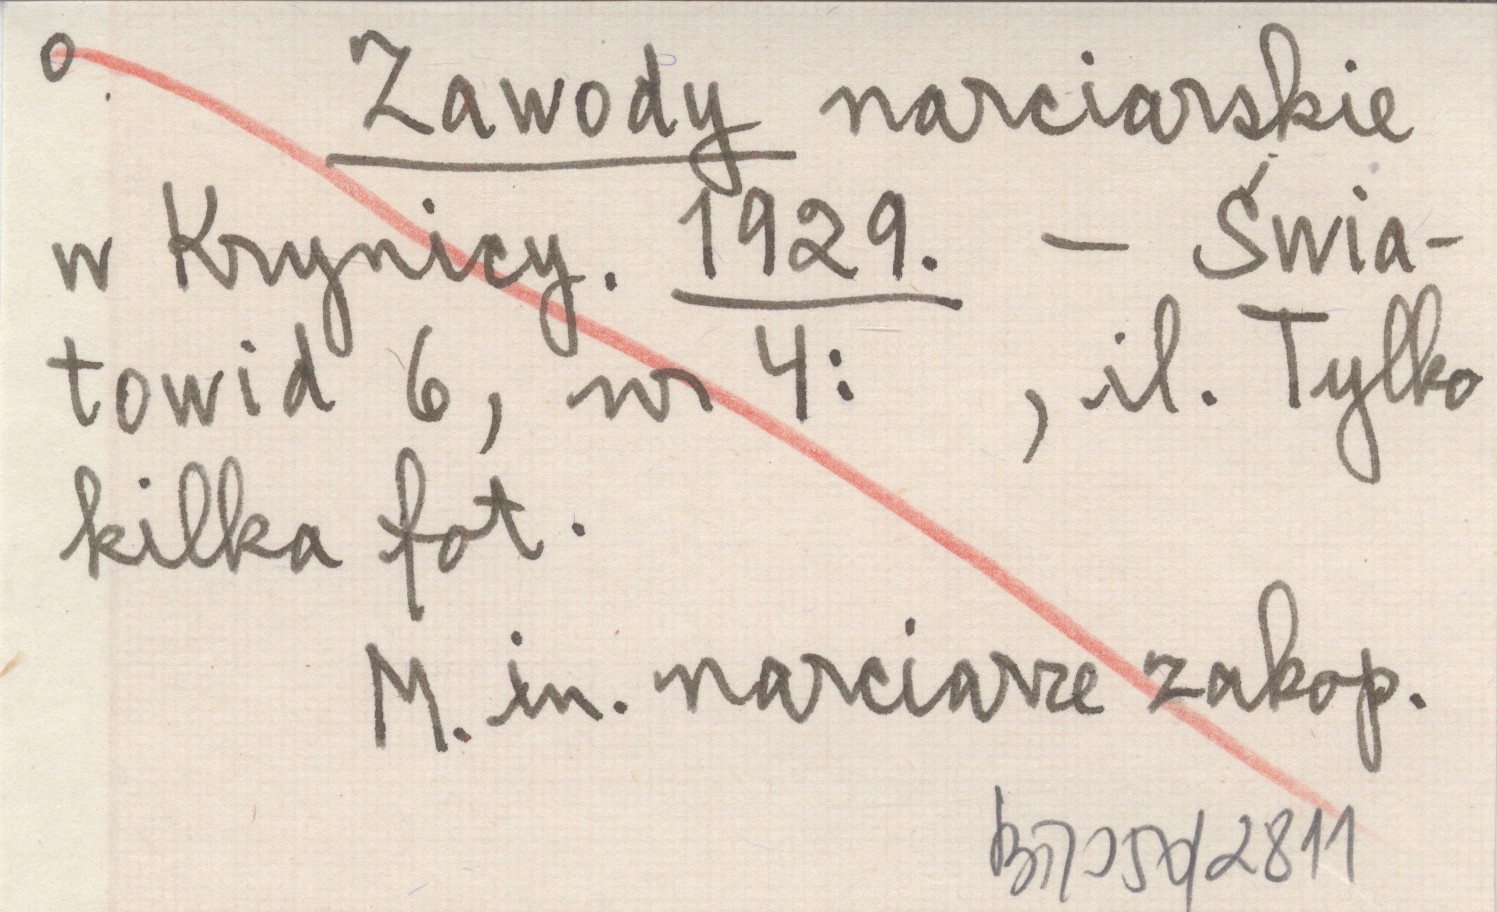 o Zawody narciarskie
w Krynicy. 1929. - Świa-
towid 6, nr 4: , il. Tylko
kilka fot.
M. in. narciarze zakop.
2811